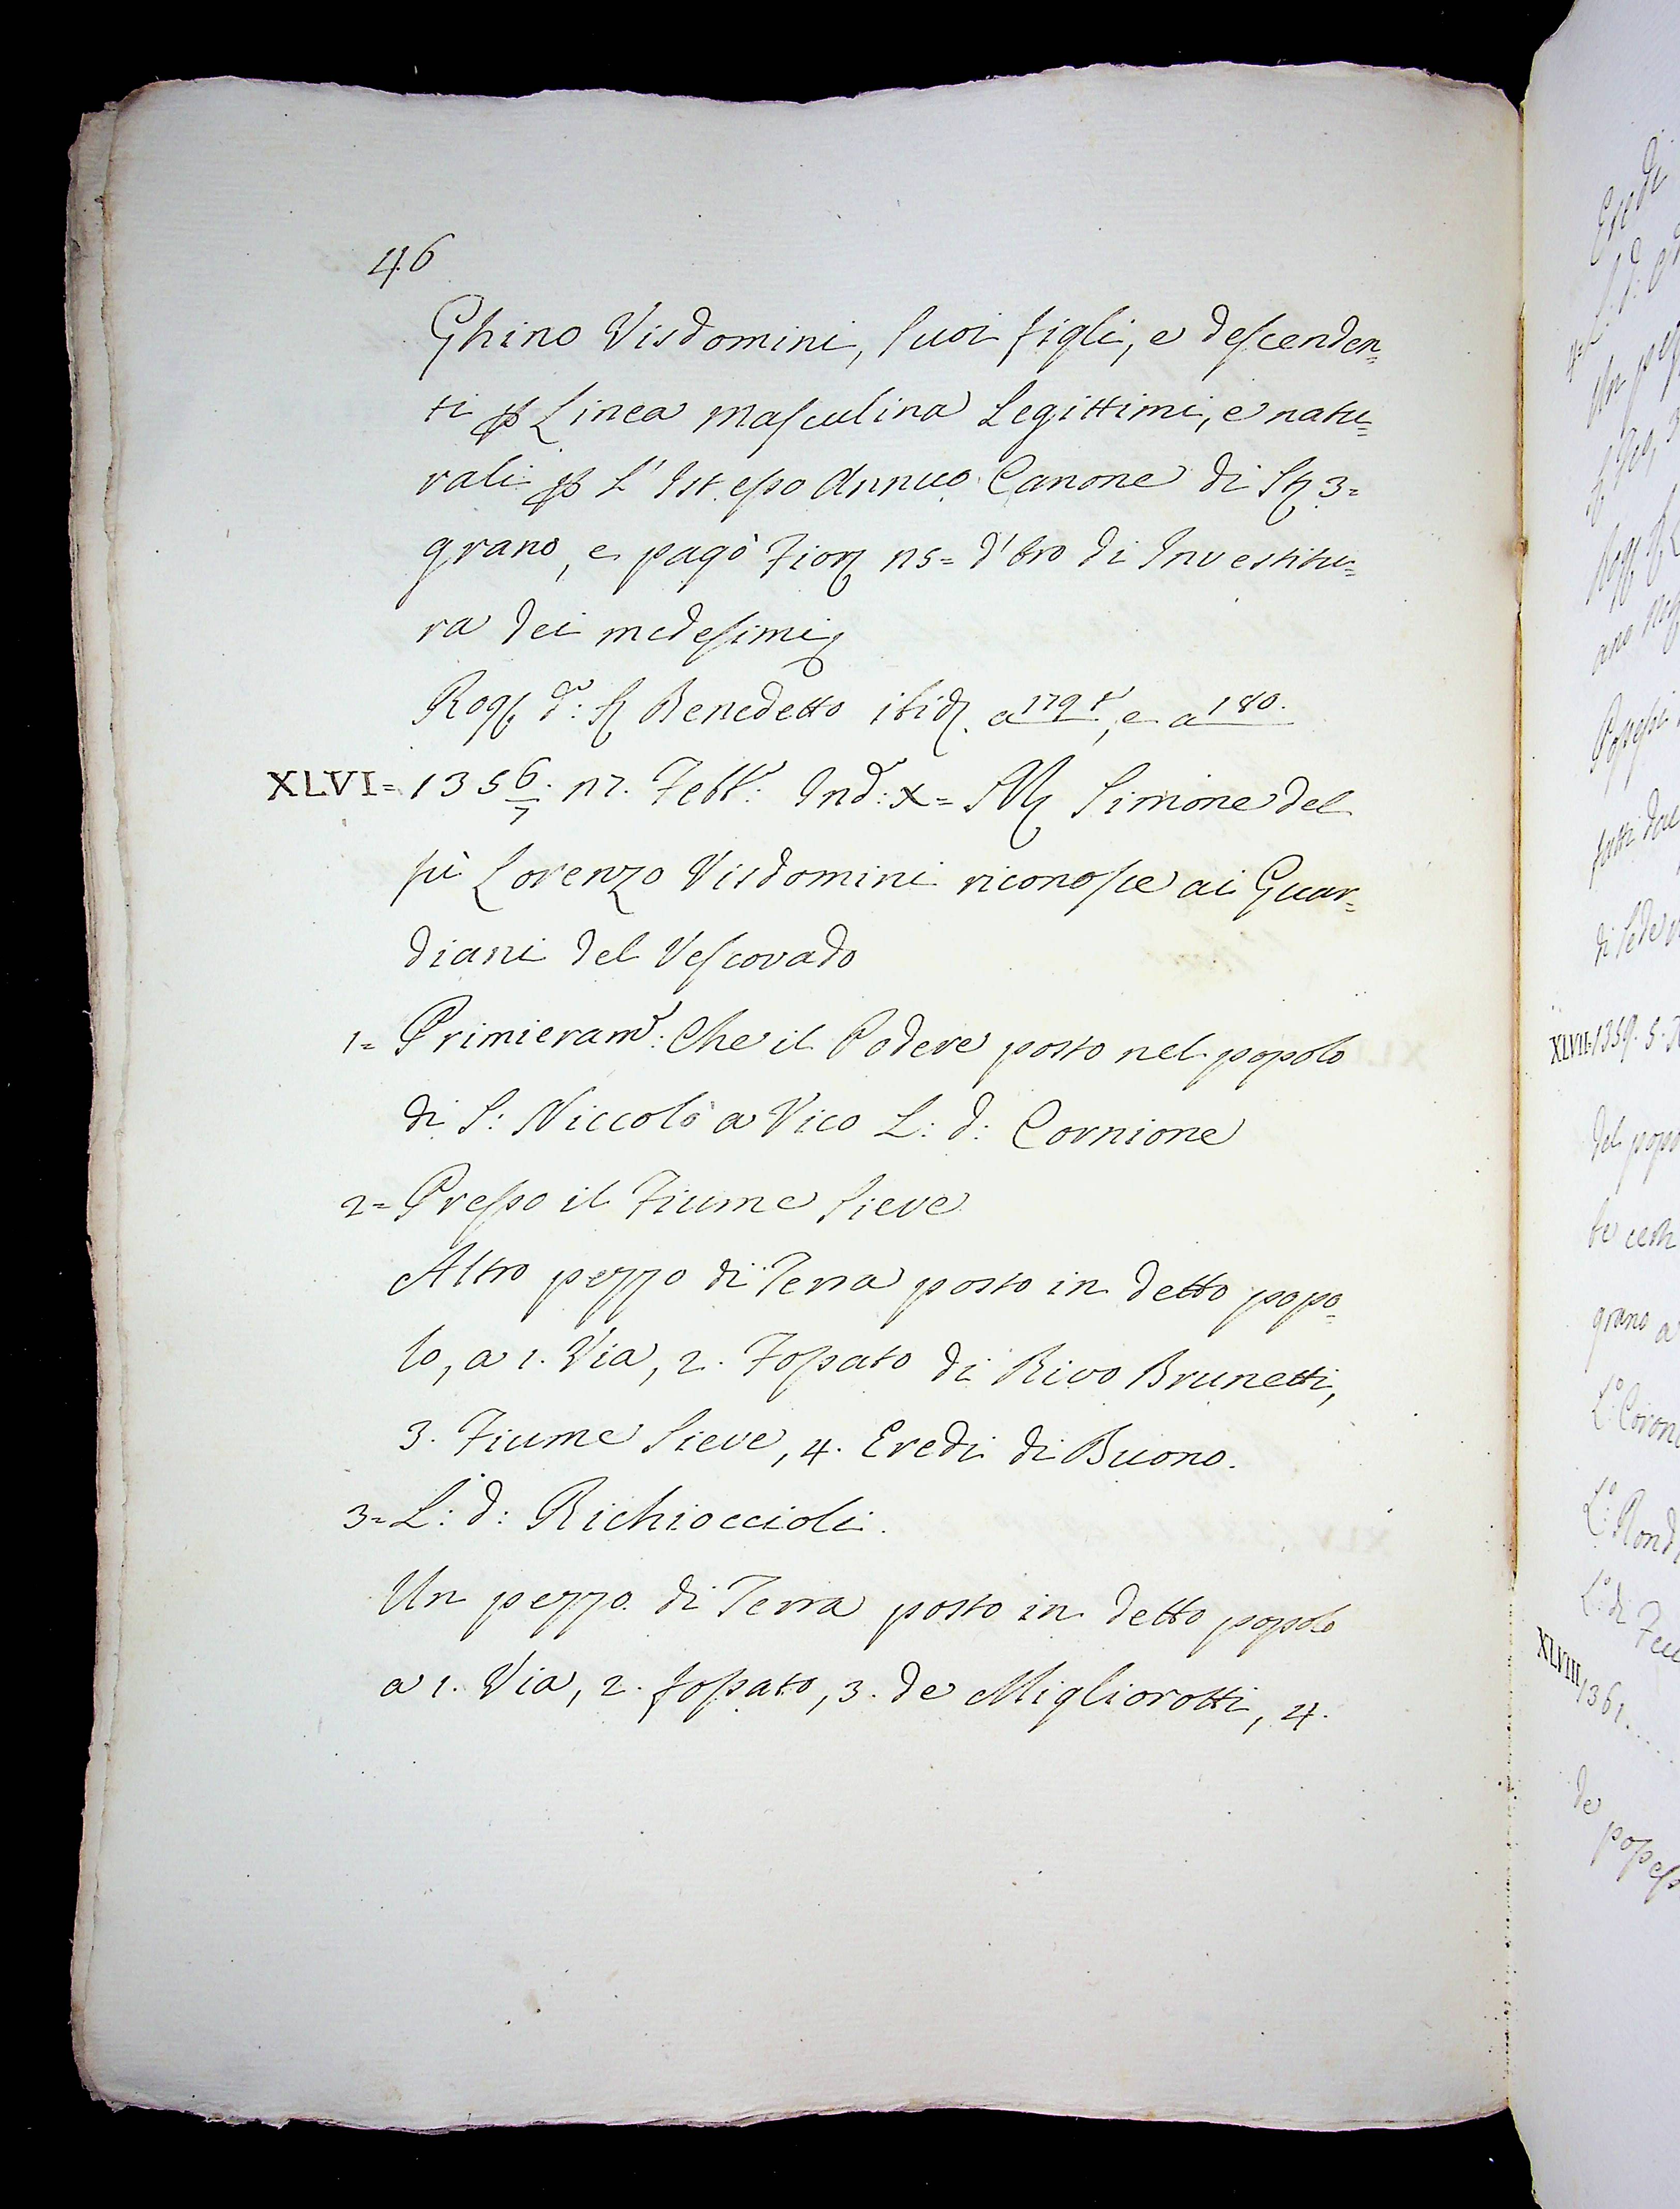 46
Ghino Visdomini, suoi figli, e descenden=
ti p Linea Masculina Legittimi, e natu=
rali p L'Istesso Annuo Canone di St 3=
grano, e pagò Fior 15= d'Oro di Investitu=
ra dei medesimi
Rog d: S Benedetto ibid. a 179 t, e a 180.
XLVI= 1356/7. 17. Febb: Ind: X= M Simone del
fù Lorenzo Visdomini riconosce ai Guar=
diani del Vescovado
1= Primieram: Che il Podere posto nel popolo
di S: Niccolò a Vico L: d: Cornione
2= Presso il Fiume Sieve
Altro pezzo di Terra posto in detto popo=
lo, a 1. Via, 2. Fossato di Rivo Brunetti,
3. Fiume Sieve, 4. Eredi di Buono.
3= L: d: Richioccioli.
Un pezzo di Terra posto in detto popolo
a 1. Via, 2. fossato, 3. de Migliorotti, 4.
XLVII= 1359. 5.
del popo
grano a
XLVIII 1361.
de